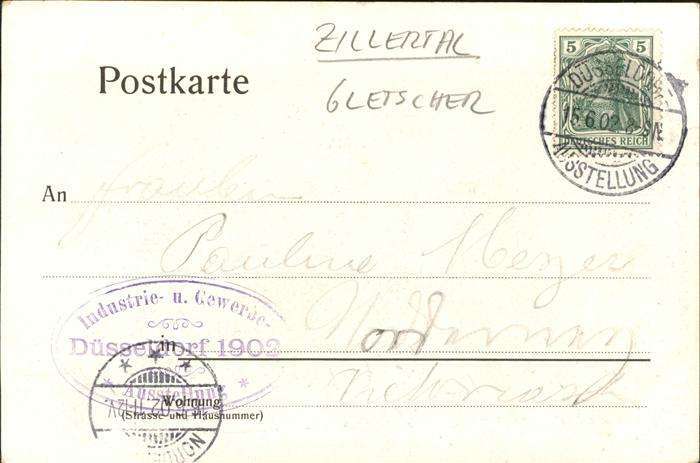 ZILLERTAL
GLETSCHER
Postkarte
5 5
DEUTSCHES REICH
DÜSSELDORF
15.6.02. 8-9N.
AUSSTELLUNG
An Fräulein
Pauline
in Norderney
Industrie- u. Gewerbe-
Düsseldorf 1902
* Ausstellung *
Wohnung
(Strasse und Hausnummer)